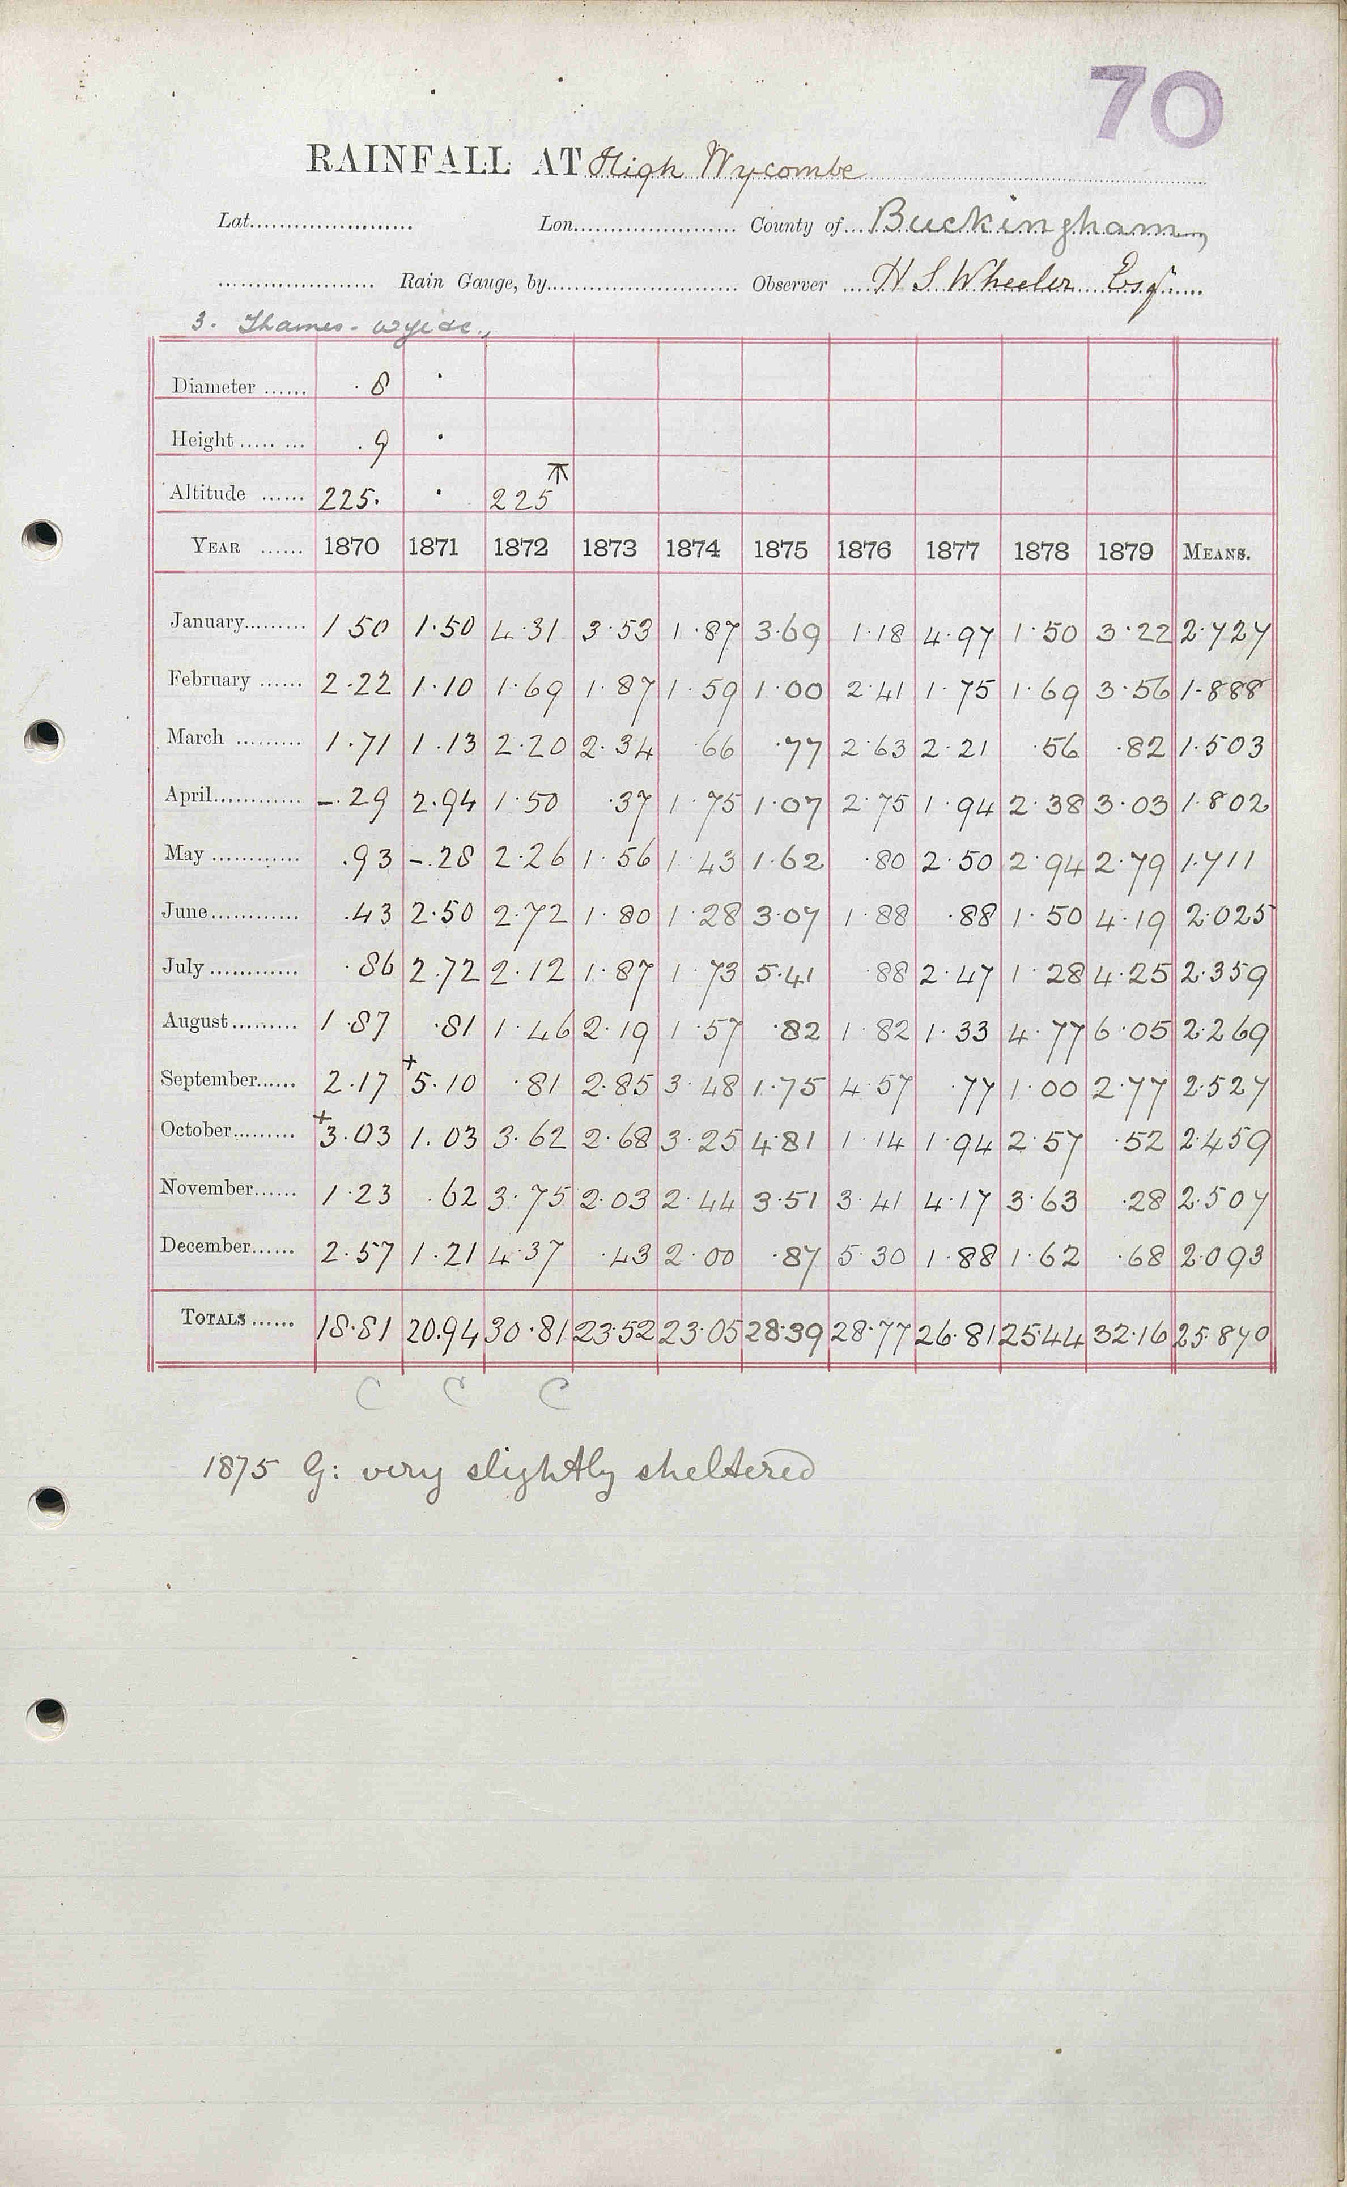 70
RAINFALL AT High Wycombe
Lat...................... Lon...................... County of... Buckingham
..................... Rain Gauge, by......................... Observer .... H S Wheeler Esqr.....
3. Thames -
Diameter ...... .8 .
Height ........ .9 .
Altitude ...... 225. . 225
YEAR ...... 1870 1871 1872 1873 1874 1875 1876 1877 1878 1879 MEANS.
January......... 1 50 1.50 4.31 3.53 1.87 3.69 1.18 4.97 1.50 3.22 2.727
February ...... 2.22 1.10 1.69 1.87 1.59 1.00 2.41 1.75 1.69 3.56 1.888
March ......... 1.71 1.13 2.20 2.34 .66 .77 2.63 2.21 .56 .82 1.503
April............ –.29 2.94 1.50 .37 1.75 1.07 2.75 1.94 2.38 3.03 1.802
May ............ .93 –.28 2.26 1.56 1.43 1.62 .80 2.50 2.94 2.79 1.711
June............ .43 2.50 2.72 1.80 1.28 3.07 1.88 .88 1.50 4.19 2.025
July ............ .86 2.72 2.12 1.87 1.73 5.41 .88 2.47 1.28 4.25 2.359
August......... 1.87 .81 1.46 2.19 1.57 .82 1.82 1.33 4.77 6.05 2.269
September...... 2.17 +5.10 .81 2.85 3.48 1.75 4.57 .77 1.00 2.77 2.527
October......... +3.03 1.03 3.62 2.68 3.25 4.81 1.14 1.94 2.57 .52 2.459
November...... 1.23 .62 3.75 2.03 2.44 3.51 3.41 4.17 3.63 .28 2.507
December...... 2.57 1.21 4.37 .43 2.00 .87 5.30 1.88 1.62 .68 2.093
TOTALS...... 18.81 20.94 30.81 23.52 23.05 28.39 28.77 26.81 25.44 32.16 25.870
C C C
1875 G: very slightly sheltered